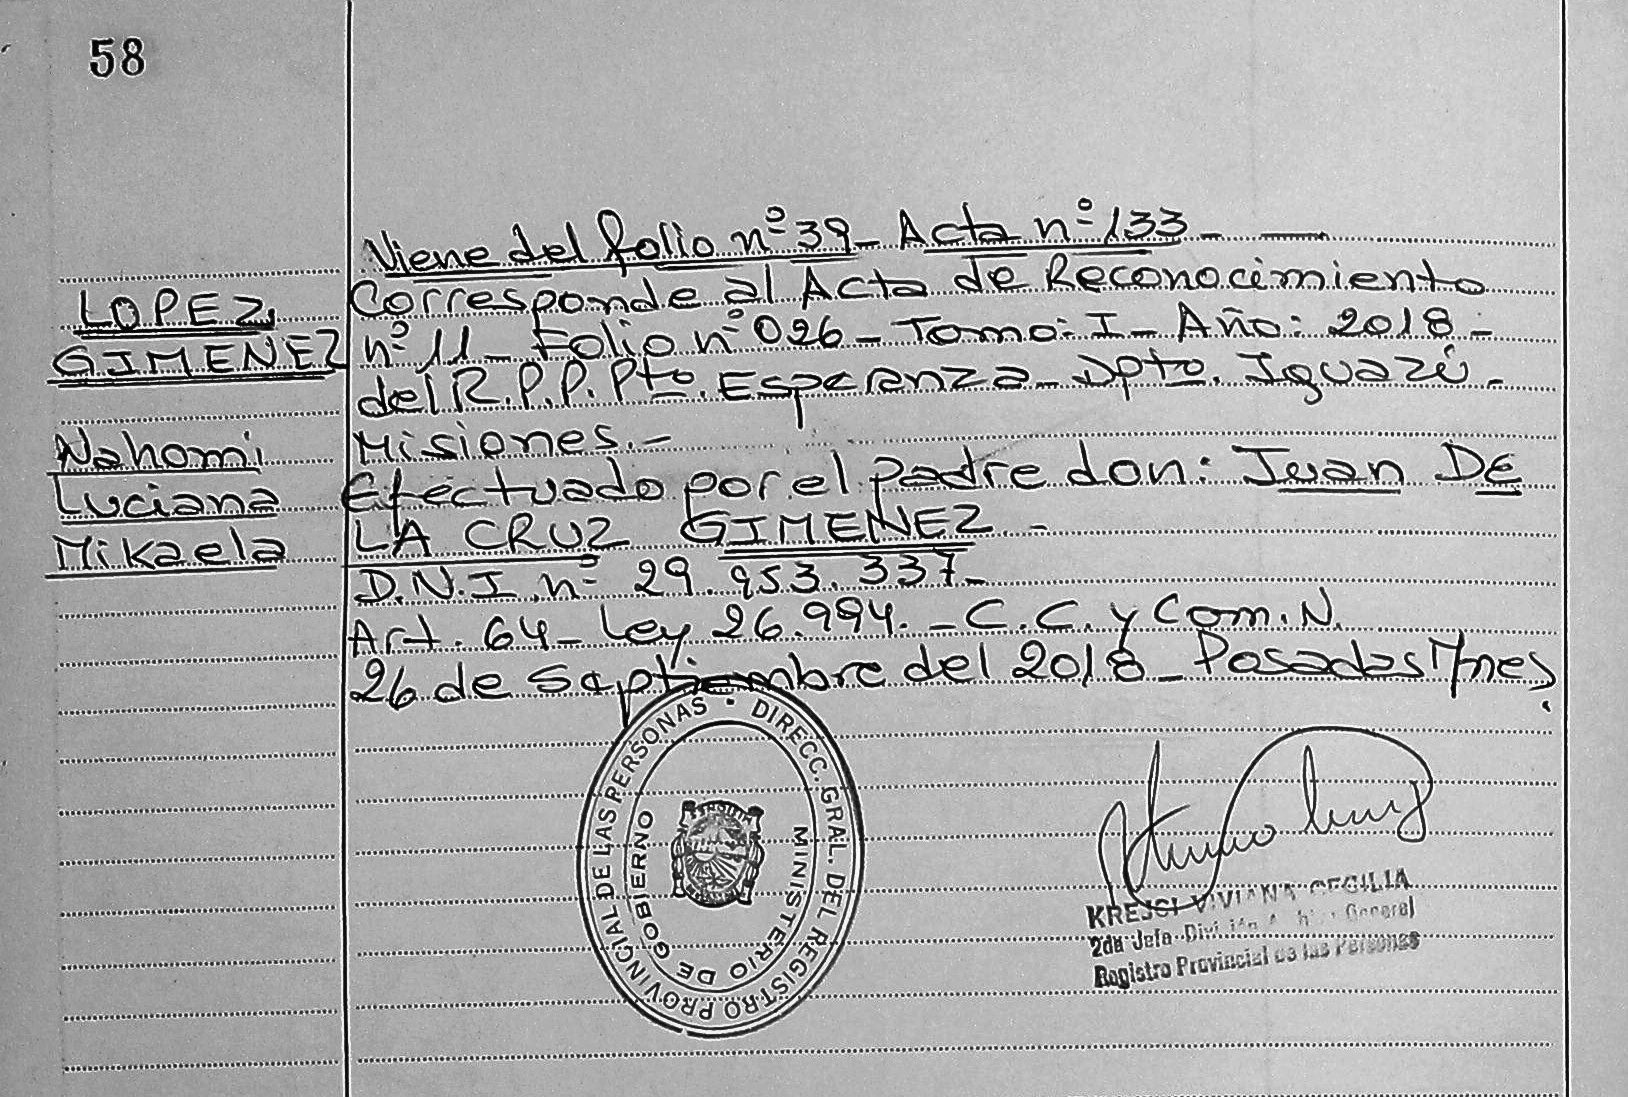 58
LOPEZ
GIMENEZ
Nahomi
Luciana
Mikaela
Viene del folio nº 39 - Acta nº 133 - —
Corresponde al Acta de Reconocimiento
nº 11 - Folio nº 026 - Tomo: I - Año: 2018 -
del R.P.P. Pto. Esperanza - Dpto. Iguazú -
Misiones.-
Efectuado por el padre don: Juan DE
LA CRUZ GIMENEZ -
D.N.I. nº 29.953.337-
Art. 64 - Ley 26.994. - C.C. y Com. N.
26 de Septiembre del 2018 - Posadas Mnes.
DIRECC. GRAL. DEL REGISTRO PROVINCIAL DE LAS PERSONAS
MINISTERIO DE GOBIERNO
KREJCI VIVIANA CECILIA
2da Jefa División General
Registro Provincial de las Personas